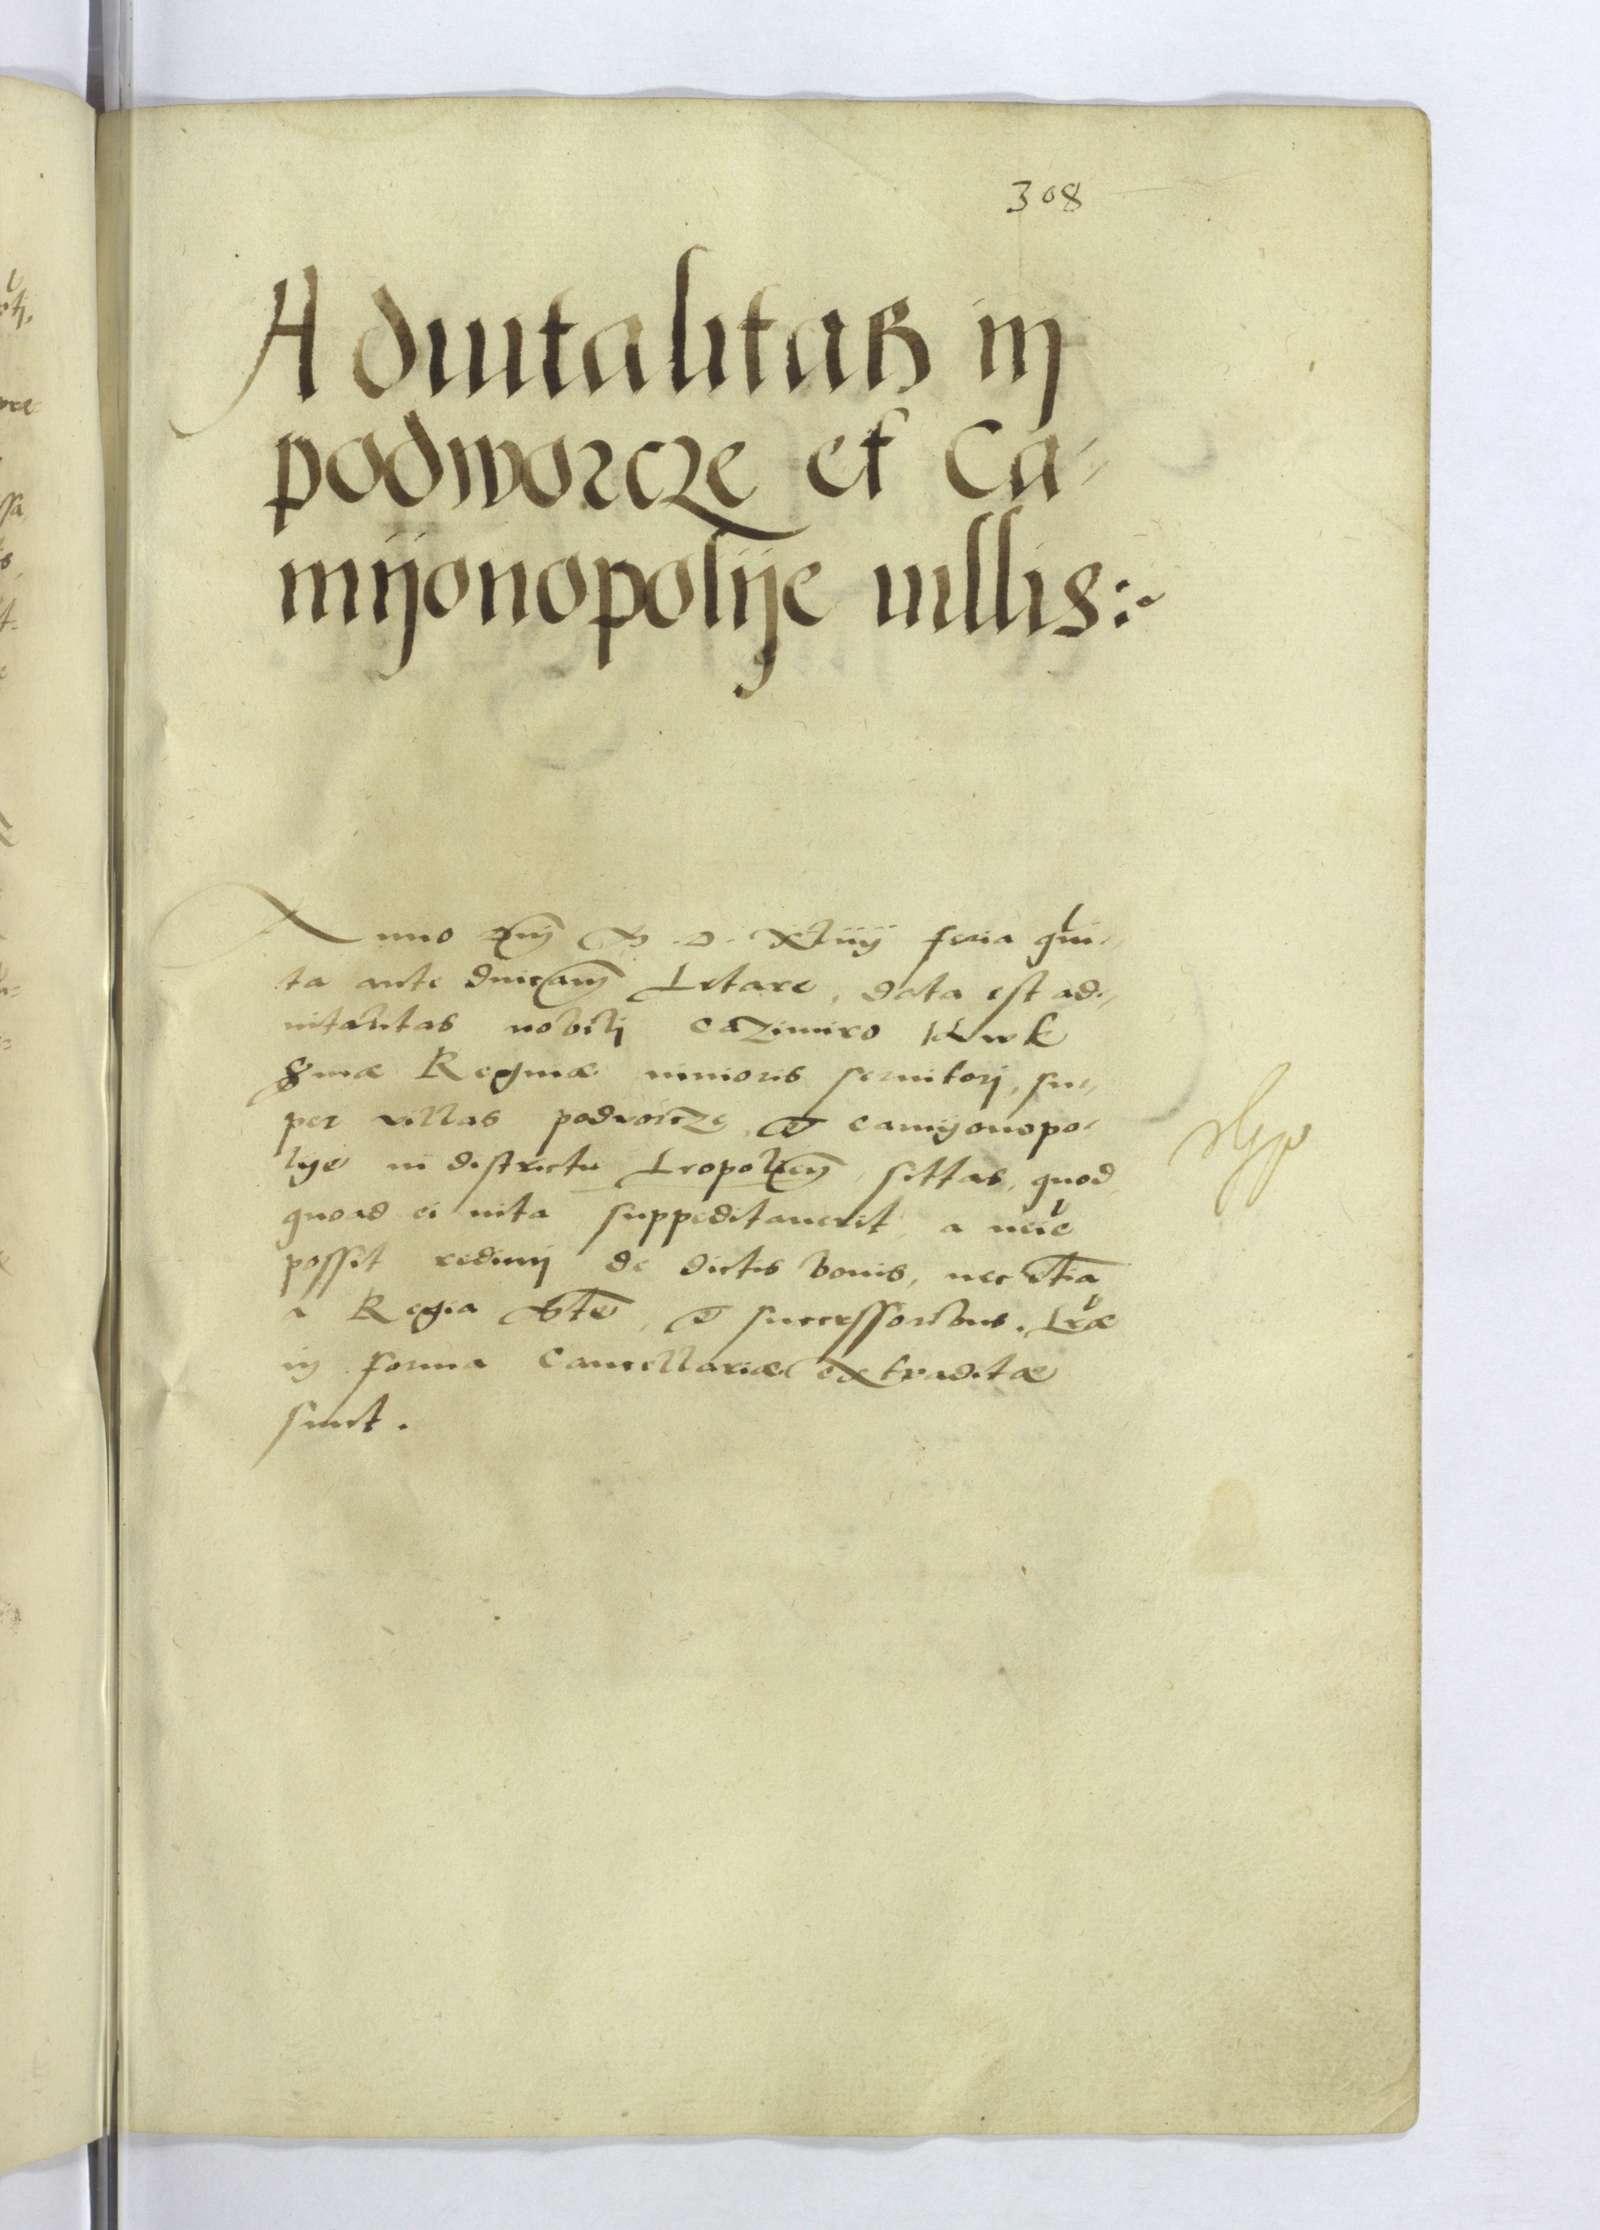 308
Aduitalitas in
podworcze et Ca-
mijonopolije uillis:
Anno Dnj M. D. XLiiij feria qui-
ta ante dnicam Letare, data est ad-
uitalitas nobilj Cazimiro
Smæ Reginæ iunioris seruitorj, su-
per villas podvorcze, et camijonopo-
lije in districtu Leopolien sittas, quod
quoad ei uita suppeditauerit, a neie
possit redimj de dictis bonis, nec etia
a Regia Mte, et successoribus. Lræ
in forma Cancellariæ extraditæ
sunt.